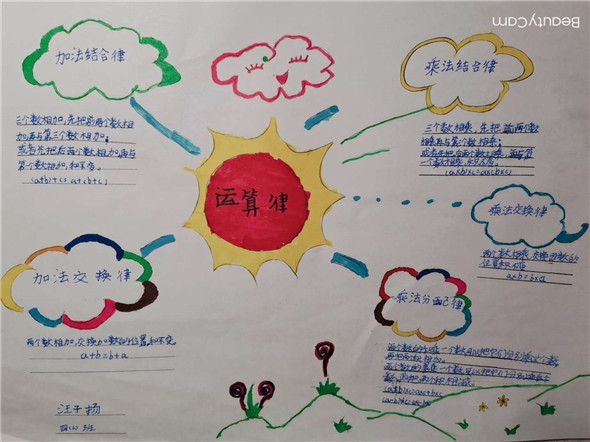 BeautyCam
加法结合律
三个数相加,先把前两个数相
加,再与第三个数相加;
或者先把后两个数相加,再与
第一个数相加,和不变。
(a+b)+c=a+(b+c)
乘法结合律
三个数相乘,先把前两个数
相乘,再与第三个数相乘;
或者先把后两个数相乘,再与第
一个数相乘,积不变。
(a×b)×c=a×(b×c)
运算律
乘法交换律
两个数相乘,交换两个数的
位置积不变
a×b=b×a
加法交换律
两个数相加,交换加数的位置,和不变
a+b=b+a
乘法分配律
两个数的和乘一个数,可以把它们分别乘这个数,
再把积相加。
两个数的差乘一个数,可以把它们分别